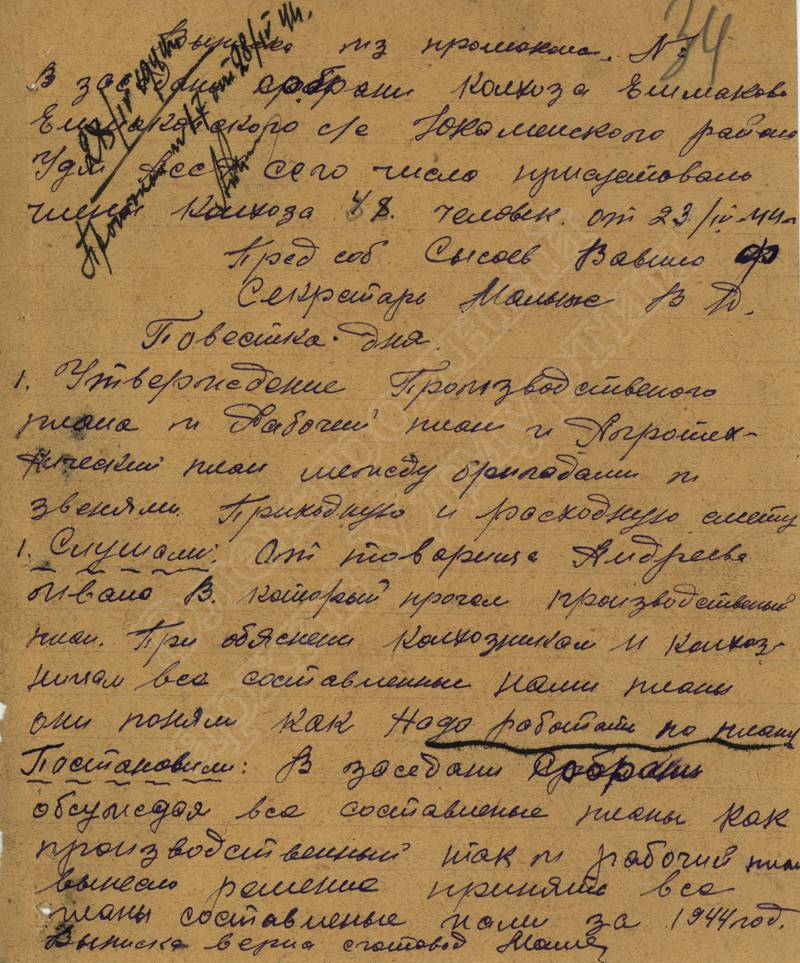 34
28/IV 1944
Протокол №7 от 28/IV 44.
Выписка из протокола. №
В заседани собрани Колхоза Ешмаково
Ешмакайского с/с Юкаменского района
Удм АССР сего число присуствовало
члены Колхоза 48. человек. от 23/IV-44
Пред соб Сысоев Вавило Ф
Секретарь Малых В Д.
Повестка. дня.
1. Утверждение Производственого
плана и Рабочий план и Агротех-
нический план между бригадами и
звенями. Приходную и расходную смету
1. Слушали: От товарища Андреева
Ивана В. который прочел производственый
план. При обяснени колхозникам и колхоз-
ницам все составленные нами планы
они понял как Надо работать по плану
Постановили: В заседани Собрани
обсуждая все составленые планы как
производственный так и рабочий план
вынесло решение принять все
планы составленые нами за 1944 год.
Выписка верна счетовод